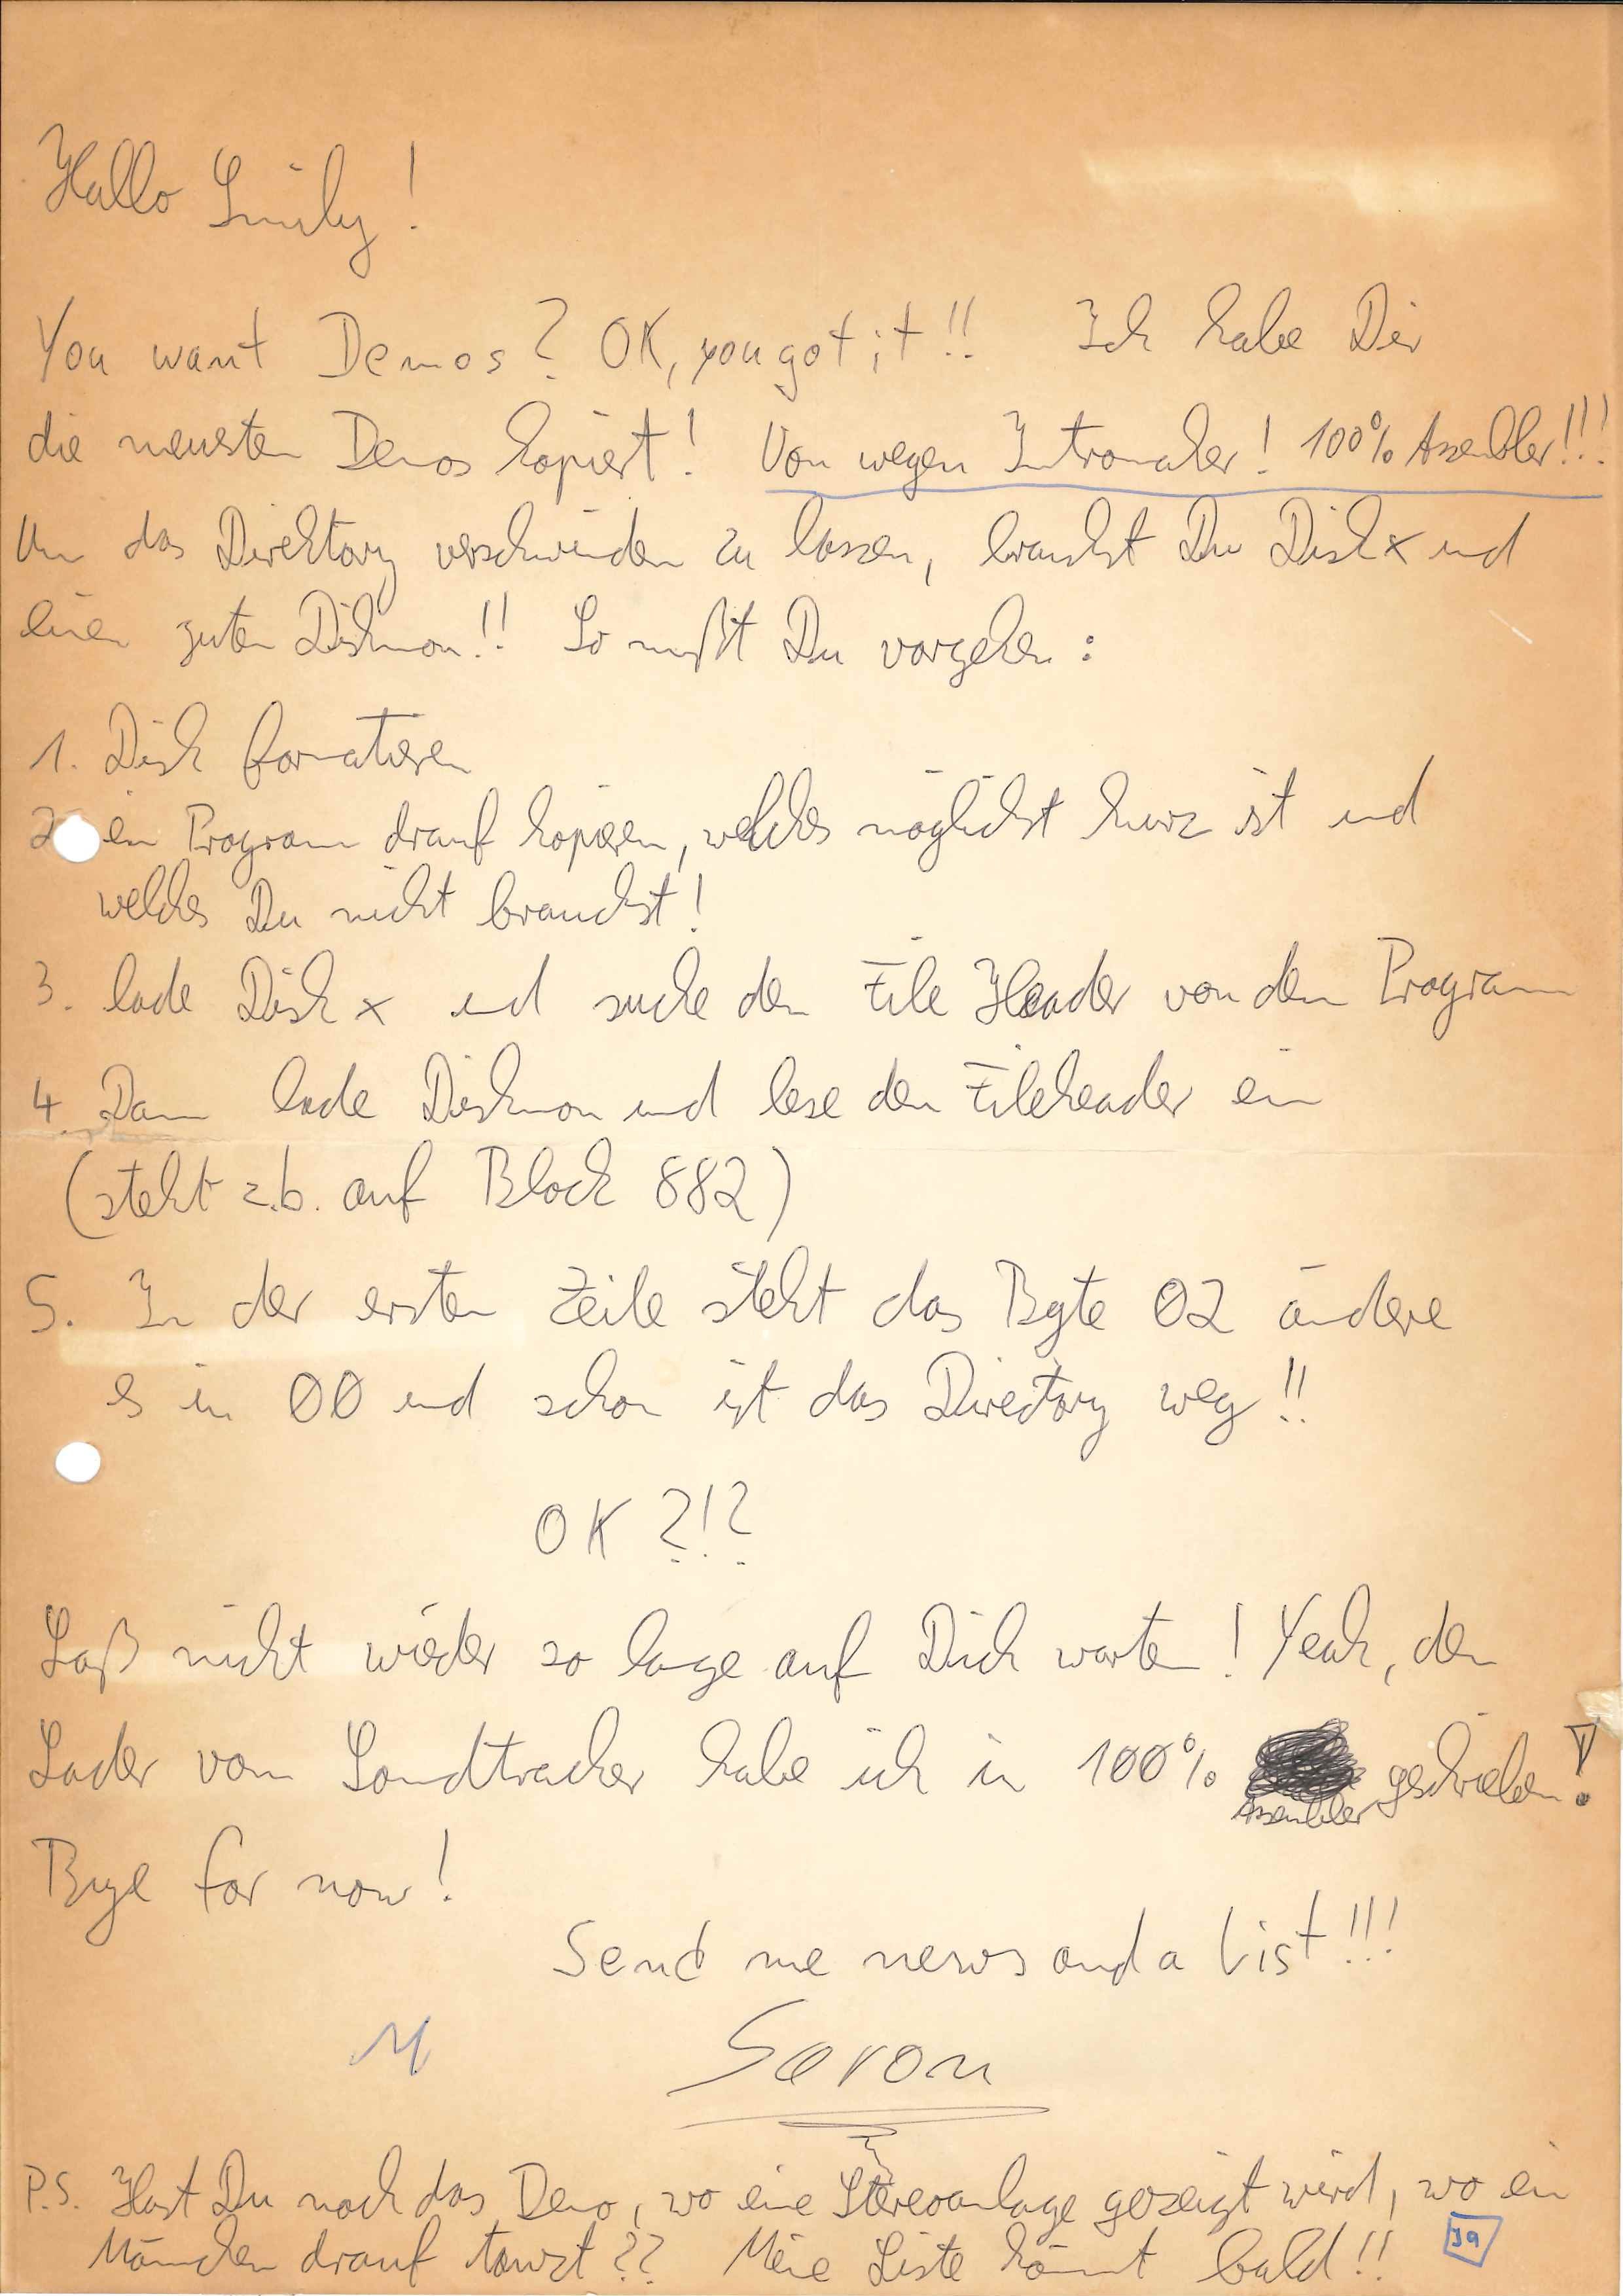 Hallo Smily!
You want Demos? OK, you got it!! Ich habe Dir
die neusten Demos kopiert! Von wegen Intromaker! 100% Assembler!!!
Um das Direktory verschwinden zu lassen, brauchst Du Disk x und
einen guten Diskmon!! So mußt Du vorgehen:
1. Disk formatieren
2 ein Program drauf kopieren, welches möglichst kurz ist und
welches Du nicht brauchst!
3. lade Disk x und suche den File Header von dem Program
4. Dann lade Diskmon und lese den Fileheader ein
(steht z.b. auf Block 882)
5. In der ersten Zeile steht das Byte 02 ändere
es in 00 und schon ist das Directory weg!!
OK?!?
Laß nicht wieder so lange auf Dich warten! Yeah, den
Lader vom Soundtracker habe ich in 100% Assembler geschrieben!
Bye for now!
Send me news and a list!!!
Savon
P.S. Hast Du noch das Demo, wo eine Stereoanlage gezeigt wird, wo ein
Männchen drauf tanzt?? Meine Liste kommt bald!!
Ja